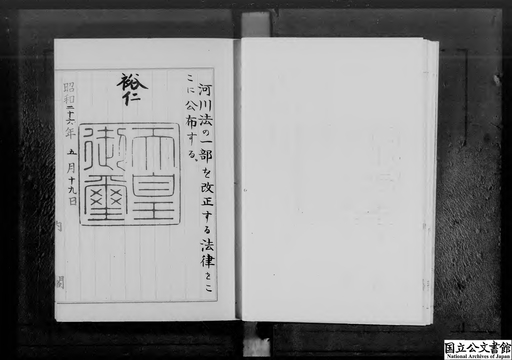 河川法の一部を改正する法律をこ
こに公布する。
裕仁
天皇
御璽
昭和二十六年五月十九日
内閣
国立公文書館
National Archives of Japan